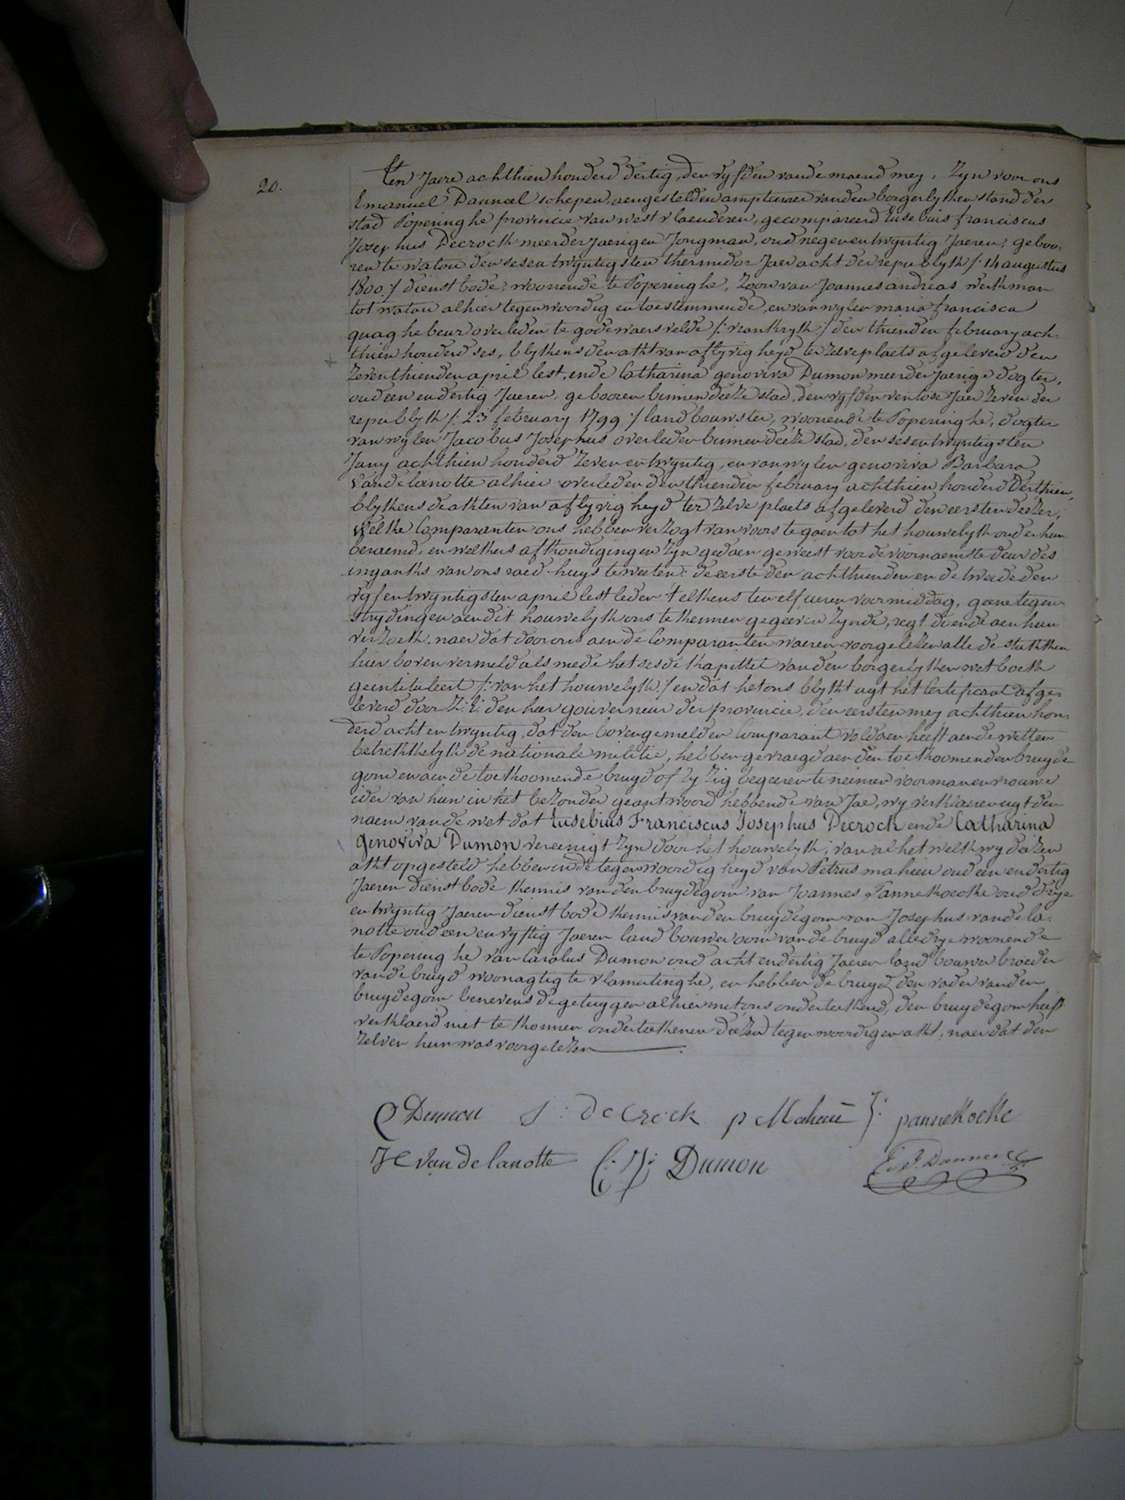 20.
Ten Jaere achthien honderd dertig, den vyfden van de maend mey, Zyn voor ons
Emanuel Dauncel schepen, aengestelden amptenaer van den borgerlyken stand der
stad Poperinghe provincie van west vlaenderen, gecompareerd Eusebius franciscus
Josephus Decrock meerderjaerigen Jongman, oud negen en twyntig Jaeren, geboo-
ren te watou den sesen twyntigsten thermidor Jaer acht der republyk /: 14 augustus
1800 :/ dienstbode, woonende te Poperinghe, Zoon van Joannes andreas werkman
tot watou alhier tegenwoordig en toestemmende, en van wylen maria francisca
quaghebeur overleden te godewaersvelde /: vrankryk :/ den thienden february ach-
thien honderd ses, blykens den akt van aflyvigheyd ter zelve plaets afgeleverd den
Zeventhienden april lest, ende Catharina genoviva Dumon meerderjaerige dogter,
oud een en dertig Jaeren, gebooren binnen deeze stad, den vyfden ventose Jaer Zeven der
republyk /: 23 february 1799 :/ landbouwster, woonende te Poperinghe, dogter
van wylen Jacobus Josephus overleden binnen deeze stad, den sesen twyntigsten
Juny achthien honderd Zeven en twyntig, en van wylen genoviva Barbara
Vandelanotte alhier overleden den thienden february achthien honderd Derthien,
blykens de akten van aflyvigheyd ter zelve plaets afgeleverd den eersten deezer,
Welke Comparanten ons hebben verzogt van voorts te gaen tot het houwelyk onder hun
beraemd, en welkers afkondigingen zyn gedaen geweest voor de voornaemste deur des
inganks van ons raed-huys te weeten: de eerste den achthienden en de tweede den
vyf en twyntigsten april lestleden telkens ten elf ueren voormiddag, geene tegen-
strydingen aen dit houwelyk ons te kennen gegeeven zynde, regt doende aen hun
verzoek, naer dat door ons aen de Comparanten waeren voorgelezen alle de stukken
hier boven vermeld als mede het sesde kapittel van den borgerlyken wet boek
geintituleert /: van het houwelyk :/ en dat het ons blykt uyt het Certificaet afge-
leverd door Z: E: den heer gouverneur der provincie, den eersten mey achthien hon-
derd acht en twyntig, dat den bovengemelden Comparant voldaen heeft aen de wetten
betrekkelyk de nationale militie, hebben gevraegd aen den toekoomenden bruyde-
gom en aen de toekoomende bruyd of zy zig begeeren te neemen voor man en vrouwe
ider van hun in het bezonder geantwoord hebbende van Jae, wy verklaeren uyt den
naem van de wet dat Eusebius Franciscus Josephus Decrock ende Catharina
Genoviva Dumon vereenigt zyn door het houwelyk; van al het welk wy dezen
akt opgesteld hebben in de tegenwoordigheyd van Petrus mahieu oud een en dertig
Jaeren dienstbode kennis van den bruydegom van Joannes Pannekoecke oud drye
en twyntig Jaeren dienstbode kennis van den bruydegom van Josephus vande la-
notte oud een en vyftig Jaeren landbouwer oom van de bruyd alle drye woonende
te Poperinghe van Carolus Dumon oud acht en dertig Jaeren landbouwer broeder
van de bruyd woonagtig te vlamertinghe, en hebben de bruyd, den vader van den
bruydegom benevens de getuygen alhier met ons onderteekend, den bruydegom heeft
verklaerd niet te konnen onderteekenen deezen tegenwoordigen akt, naer dat den
zelven hun was voorgelezen
C Dumon J: De Crock p Mahieu J: panneKoeKe
J C van de lanotte C: J: Dumon E. J. Dauncel